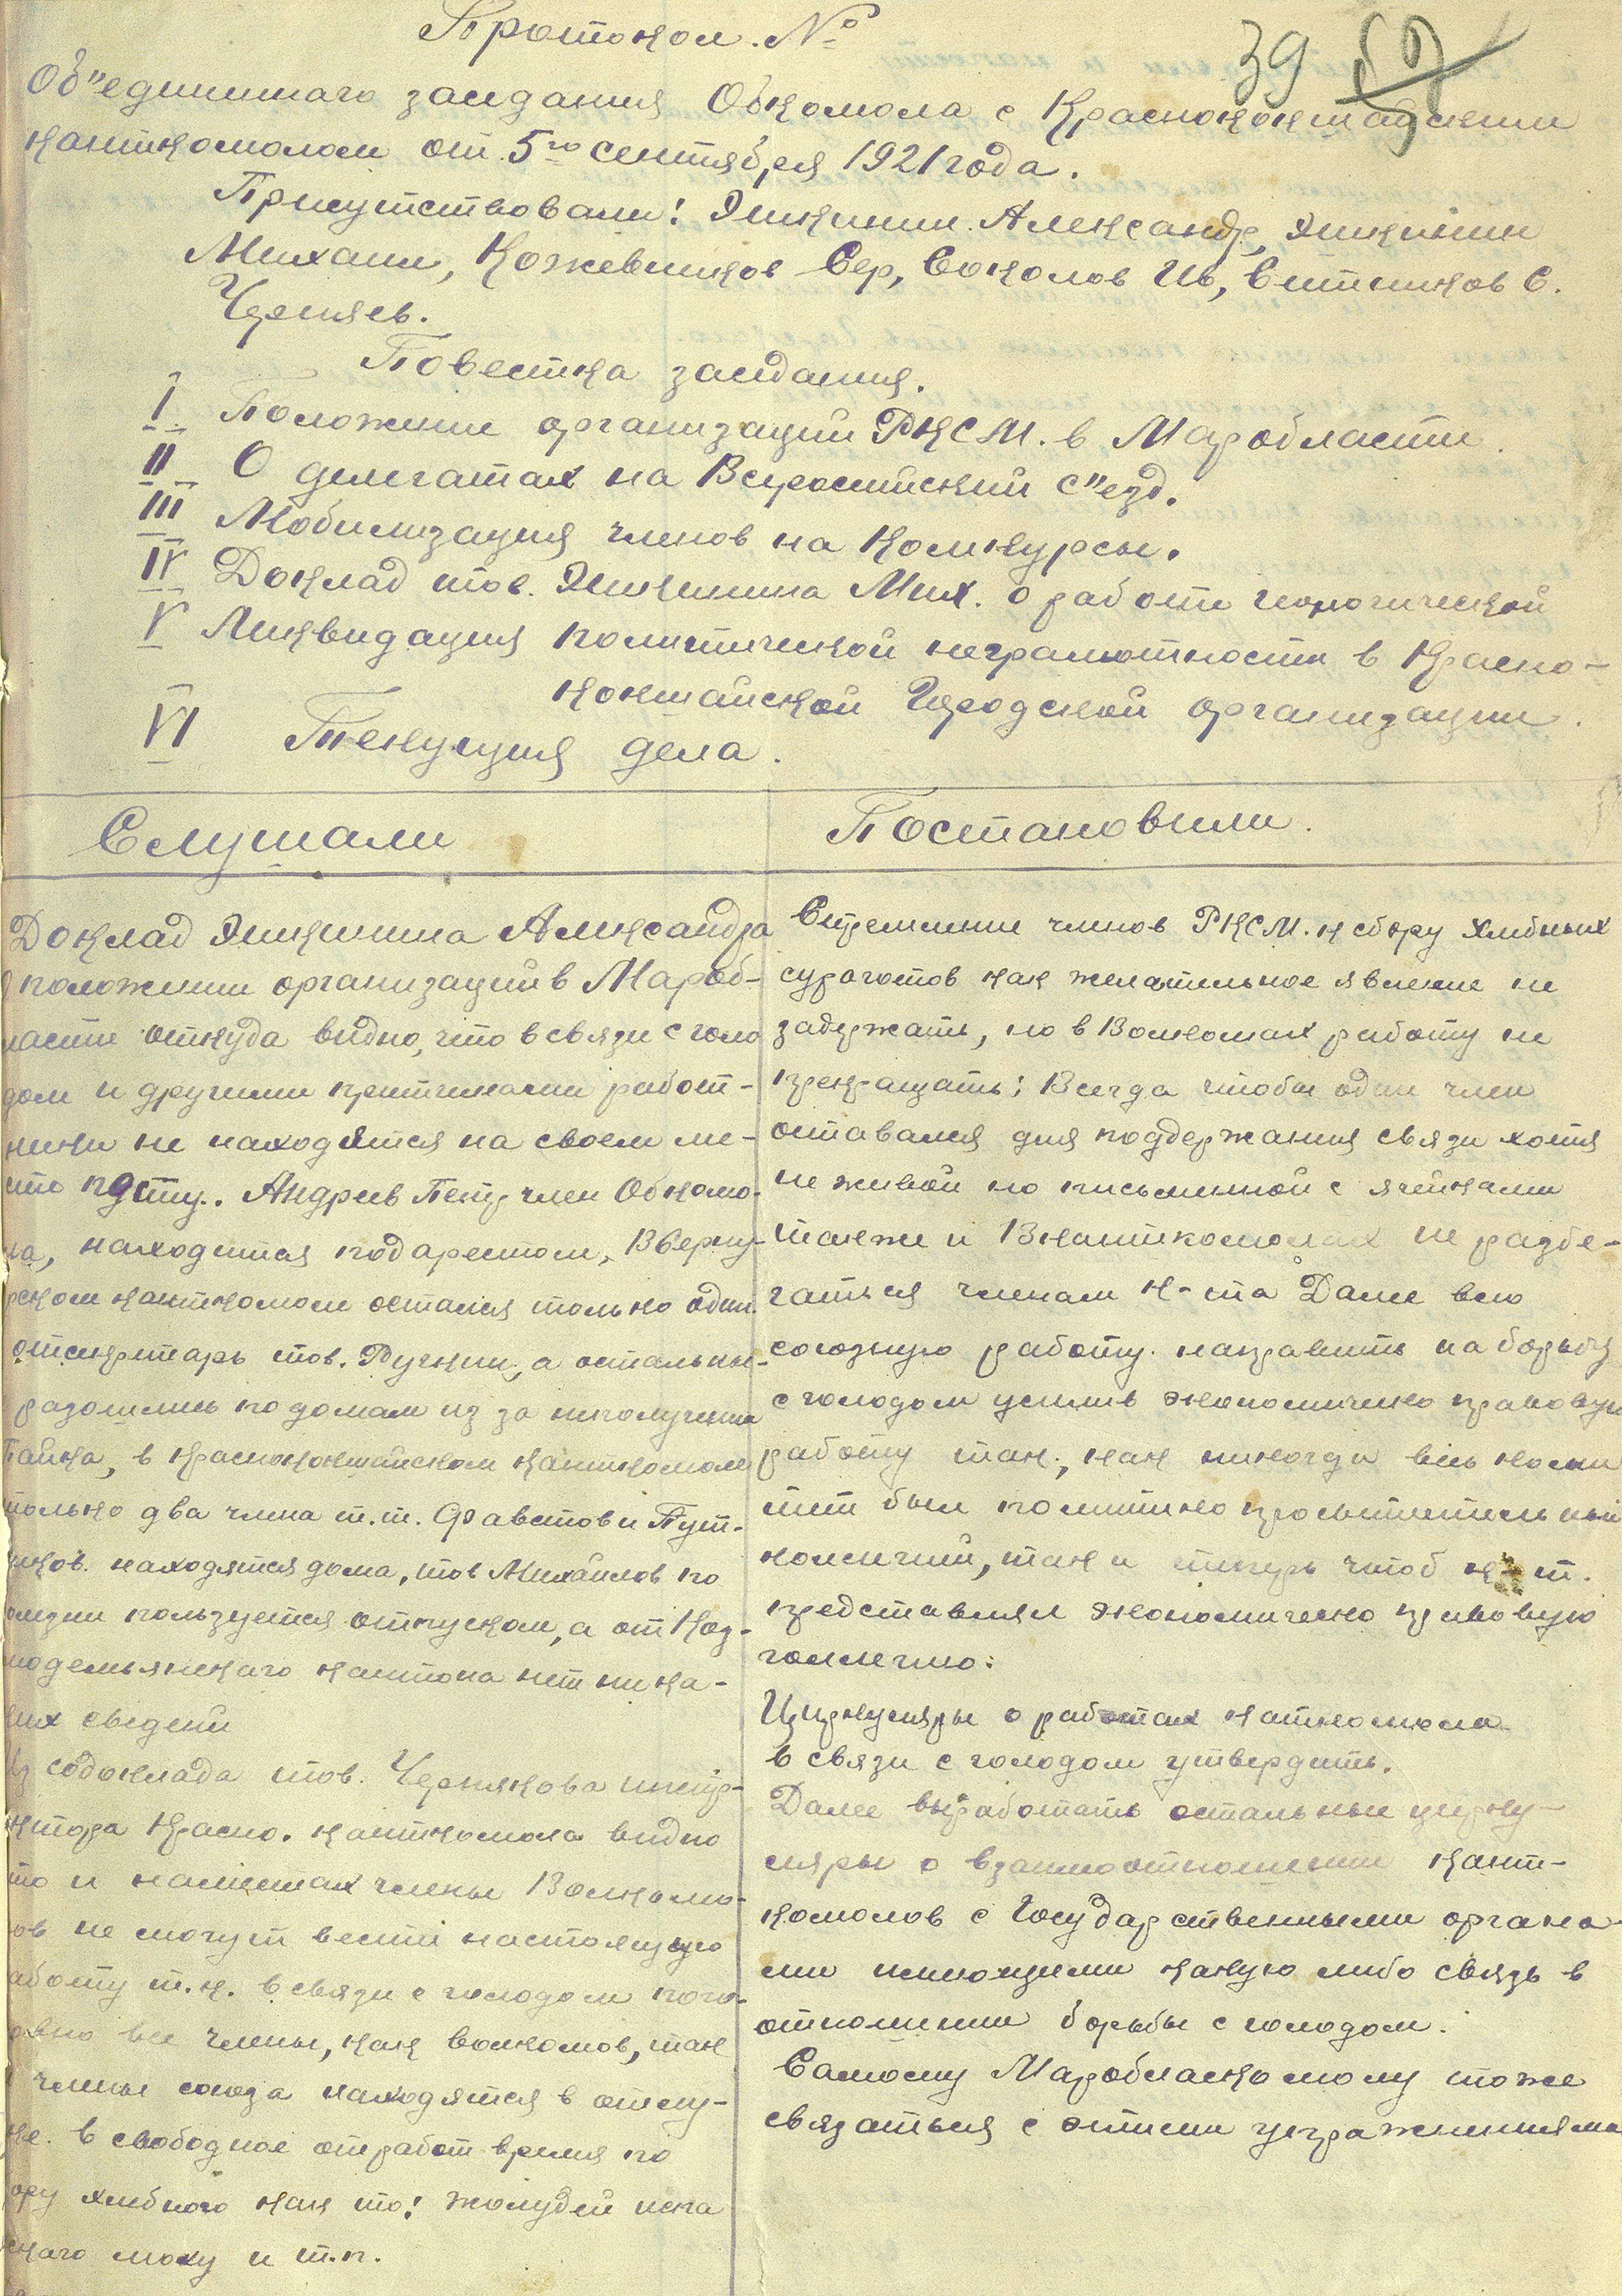 Протокол. №
39
Об"единеннаго заседания Обкомола с Краснококшайским
канткомолом от 5го сентября 1921 года.
Присутствовали: Яшкинин Александр, Яшкинин
Михаил, Кожевников Сер, Соколов Ив, Ситников С.
Черняев.
Повестка заседания.
I Положение организаций РКСМ. в Маробласти.
II О делегатах на Всеросийский с"езд.
III Мобилизация членов на Комкурсы.
IV Доклад тов. Яшкинина Мих. о работе
V Ликвидация политической неграмотности в Красно-
кокшайской Городской организации.
VI Текущия дела.
Слушали
Постановили.
Доклад Яшкинина Александра
о положении организаций в Мароб-
ласти откуда видно, что в связи с голо
дом и другими притчинами работ-
ники не находятся на своем ме-
сте посту. Андреев Петр член Обкомо-
ла, находится под арестом, В Серну-
рском канткомоле остался только один
отсекретарь тов. Ручкин, а остальные
разошлись по домам из за неполучения
Пайка, в Краснококшайском Канткомоле
только два члена т.т. Фавстов и Пут-
находятся дома, тов Михайлов по
пользуется отпуском, а от Коз-
модемьянскаго кантона нет ника-
ких сведени
Из содоклада тов. Чернякова инстр-
уктора Красно. канткомола видно
что и на местах члены Волкомо-
ов не могут вести настоящую
работу т.к. в связи с голодом пого-
овно все члены, как волкомов, так
члены союза находятся в отпу-
ке. в свободное от работ время по
сбору хлебного как то: жолудей
мохy и т.п.
Стремление членов РКСМ. к сбору хлебных
сурогатов как желательное явление не
задержать, но в Волкомах работу не
прекращать; Всегда чтобы один член
оставался для поддержания связи хотя
не живой но письменной с ячейками
также и В канткомолах не разбе-
гаться членам к-та Далее всю
союзную работу направить на борьбу
с голодом усилив экономическо правовую
работу так, как никогда весь коми
тет был политико просветительный
коллегий, так и теперь чтоб к-т.
представлял экономическо правовую
коллегию:
Циркуляры о работах каткомола
в связи с голодом утвердить.
Далее выработать остальные цирку-
ляры о взаимоотношении кант-
комолов с Государственными органа-
ми имеющими какую либо связь в
отношении борьбы с голодом.
Самому Маробласкомолу тоже
связаться с этими учражнениями